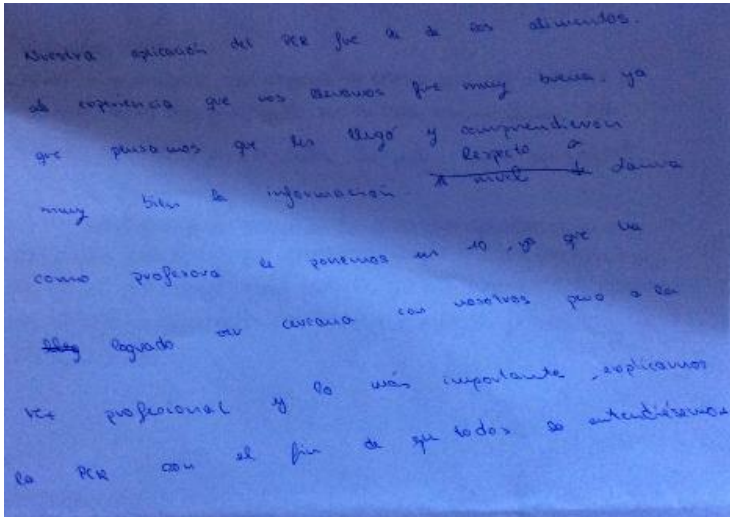 Nuestra aplicación del PCR fue la de los alimentos.
La experiencia que nos llevamos fue muy buena, ya
que pensamos que les llegó y comprendieron
muy bien la información. Respecto a Danna
como profesora le ponemos un 10, ya que ha
logrado ser cercana con nosotros pero a la
vez profesional y lo más importante, explicarnos
la PCR con el fin de que todos lo entendiésemos